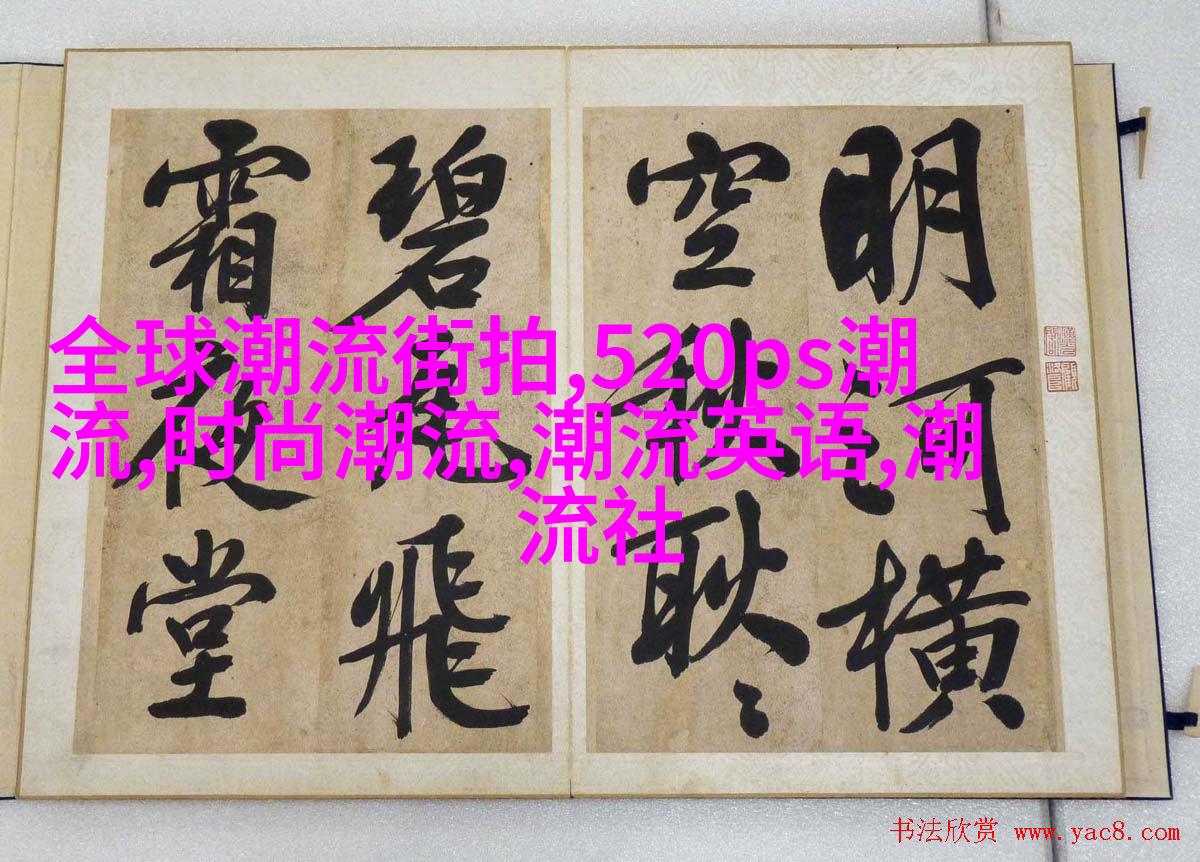 明河橫
空秋耿〻
碧瓦飛
霜夜堂
全球潮流街拍,520ps潮
流,时尚潮流,潮流英语,潮
流社
书法欣赏 www.yac8.com